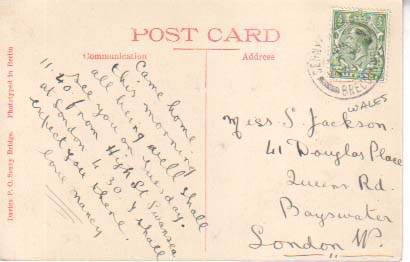 POST CARD
Communication
Address
Came home
this morning
all being well shall
see you on Tuesday.
11.40 from High St Swansea
at London 4.30. I shall
expect you there.
love Nancy
WALES
Miss S. Jackson.
41 Douglas Place
Queens Rd.
Bayswater
London W.
Davies P. O. Senny Bridge. Phototyped in Berlin